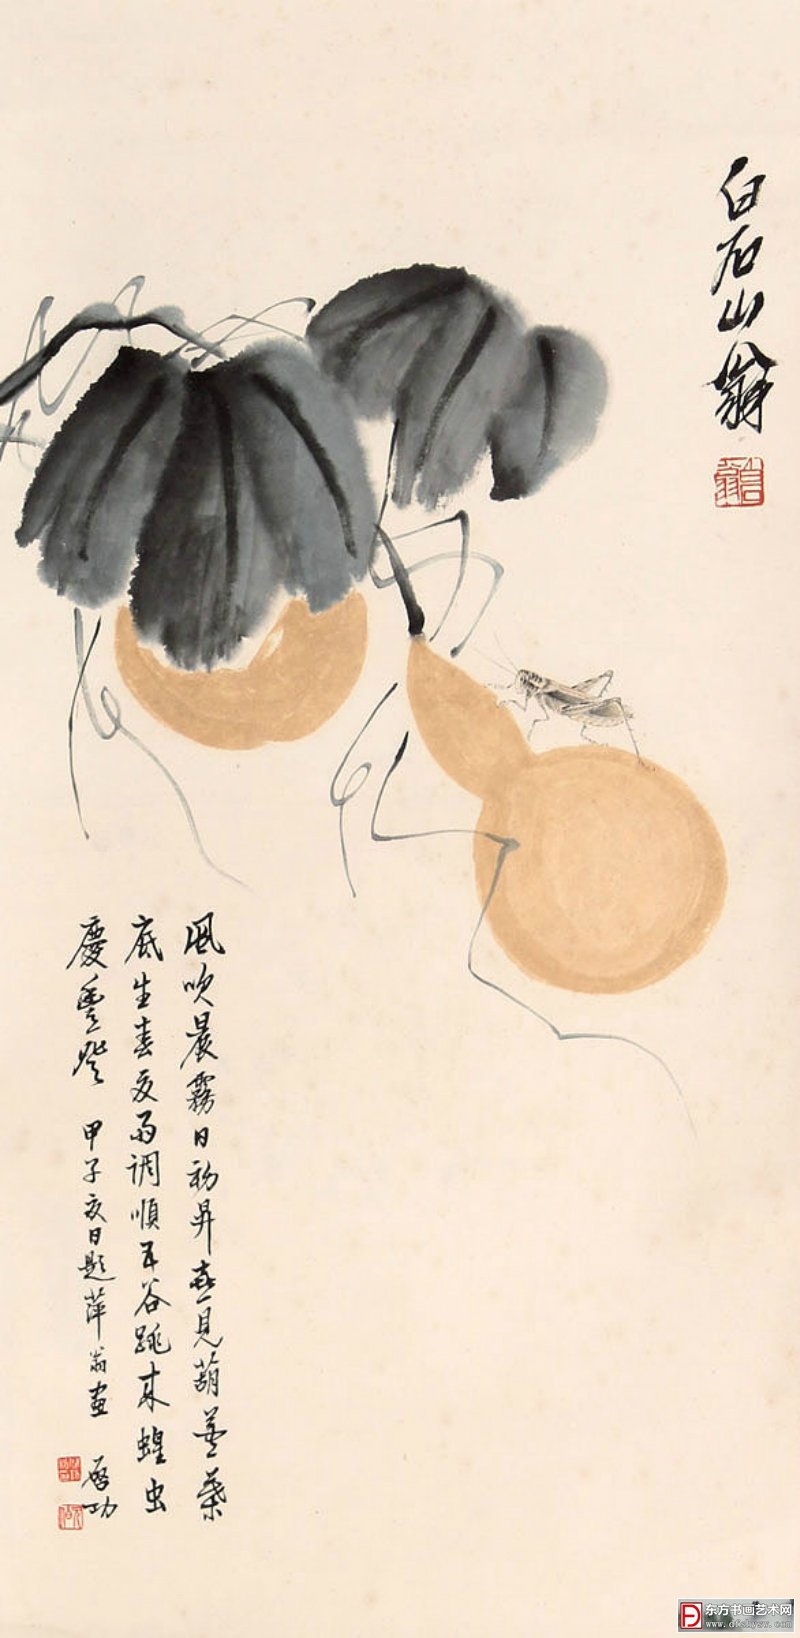 白石山翁
風吹晨霧日初昇喜見葫蘆葉
底生春夏雨调順五谷跳来蝗虫
慶豐登
甲子夏日題萍翁畫
啟功
东方书画艺术网